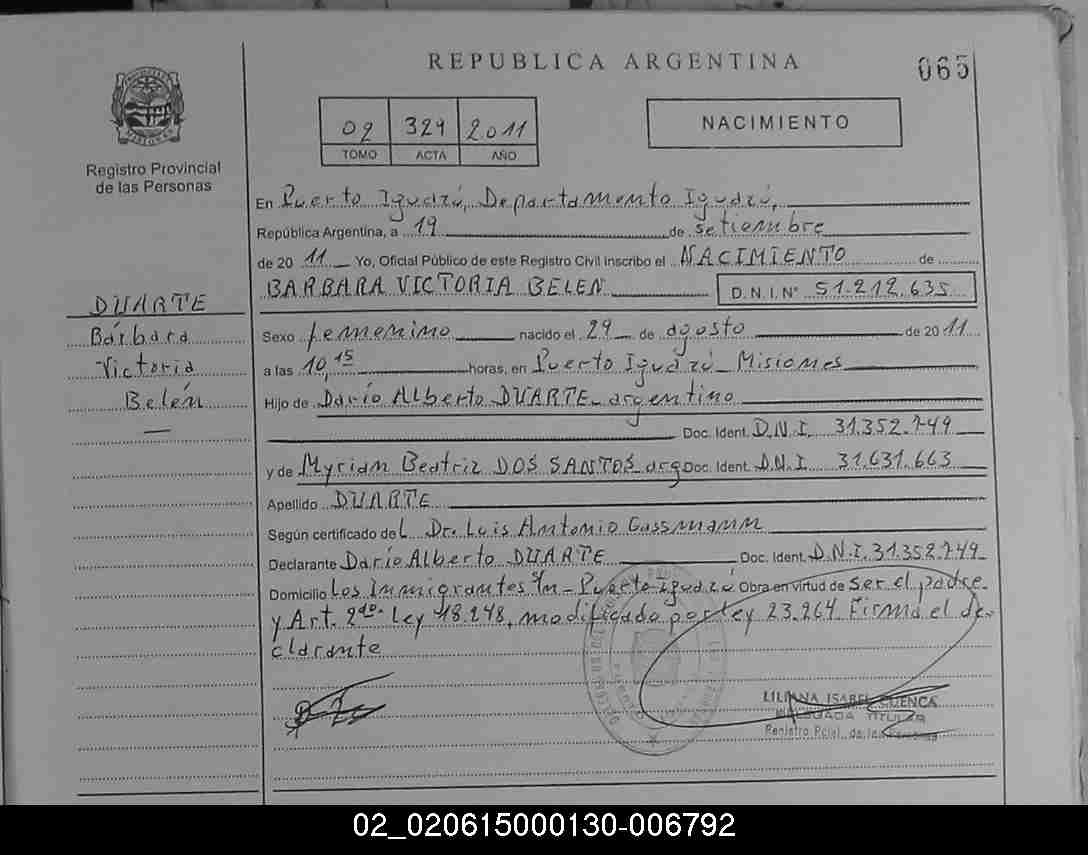 REPUBLICA ARGENTINA
065
02 329 2011
TOMO ACTA AÑO
NACIMIENTO
Registro Provincial
de las Personas
En Puerto Iguazú, Departamento Iguazú,
República Argentina, a 19 de setiembre
de 20 11 Yo, Oficial Público de este Registro Civil inscribo el NACIMIENTO de
BARBARA VICTORIA BELEN D.N.I.N° 51.212.635
DUARTE
Bárbara
Victoria
Belén
Sexo femenino nacido el 29 de agosto de 2011
a las 10,15 horas, en Puerto Iguazú Misiones
Hijo de Darío Alberto DUARTE argentino
Doc. Ident. D.N.I. 31.352.749
y de Myrian Beatriz DOS SANTOS arg Doc. Ident. D.N.I. 31.631.663
Apellido DUARTE
Según certificado del Dr. Luis Antonio Gassmann
Declarante Darío Alberto DUARTE Doc. Ident. D.N.I. 31.352.749
Domicilio Los Inmigrantes S/n - Puerto Iguazú Obra en virtud de ser el padre
y Art. 2do. Ley 18.248, modificado por ley 23.264. Firma el de-
clarante
LILIANA ISABEL CUENCA
DELEGADA TITULAR
Registro Pcial. de las Personas
02_020615000130-006792